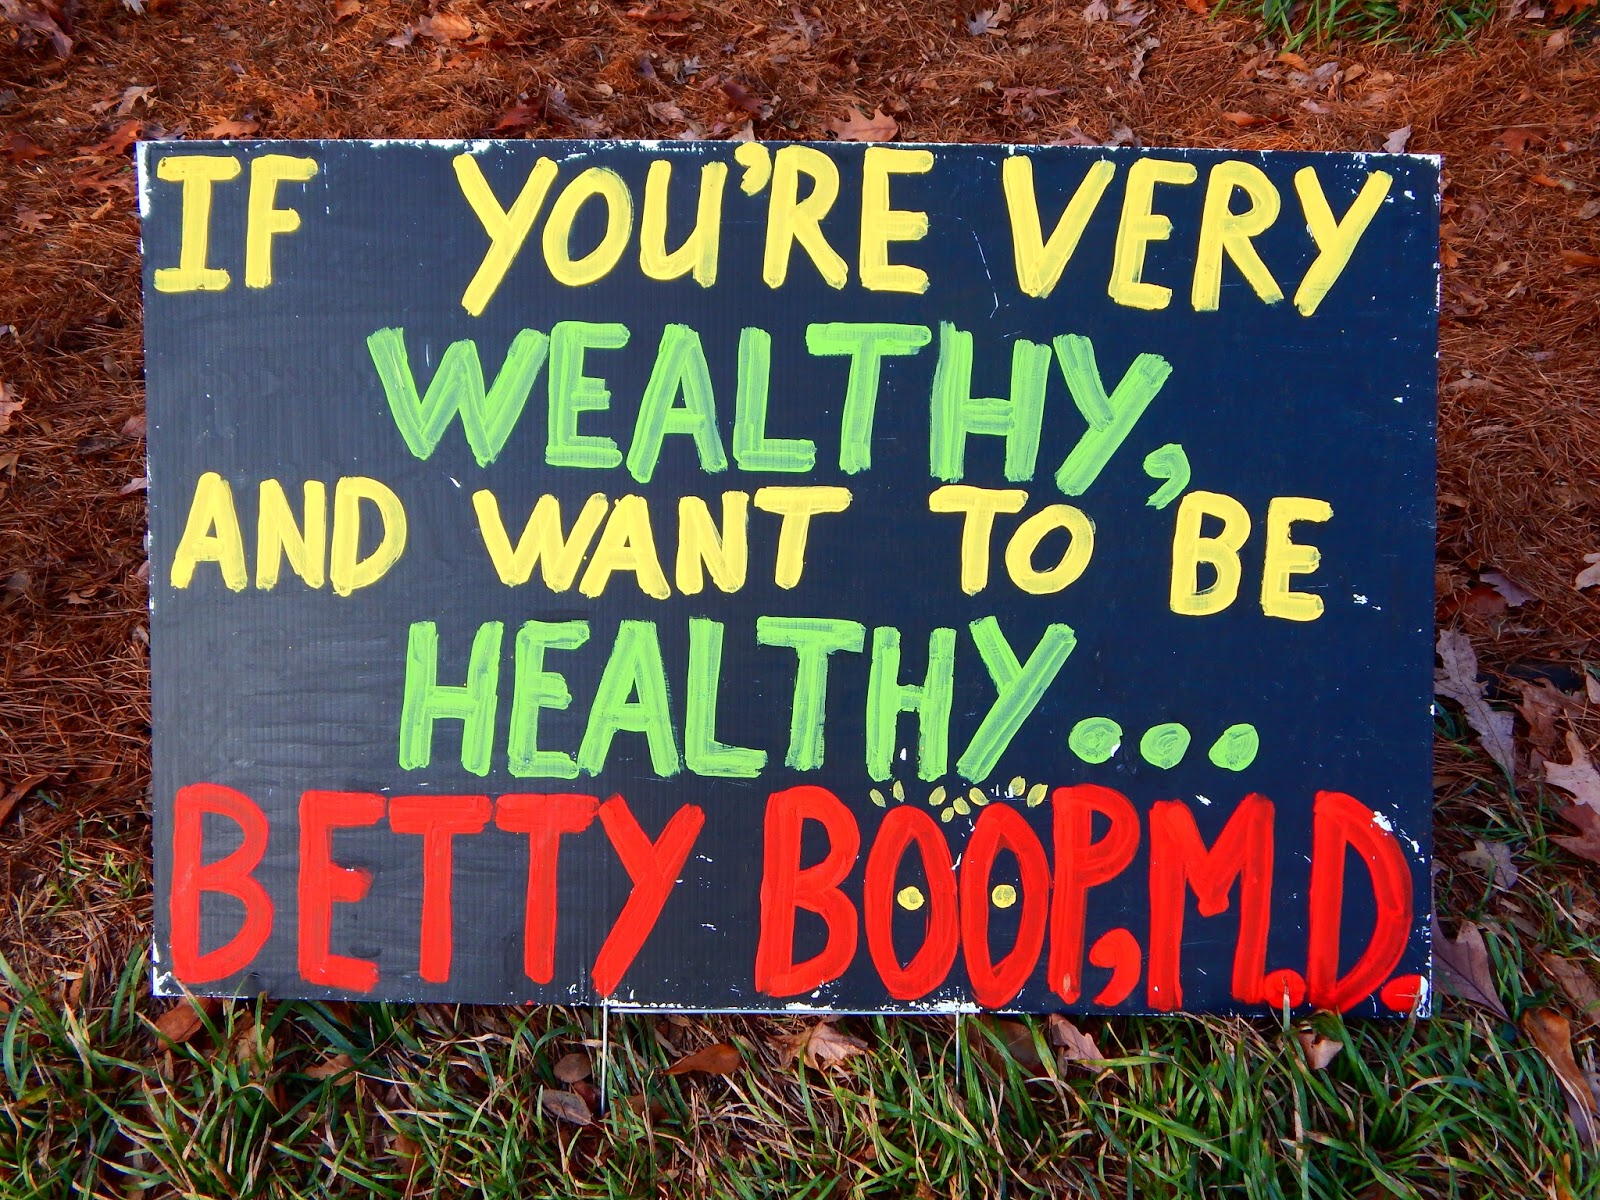 IF YOU'RE VERY
WEALTHY,
AND WANT TO BE
HEALTHY...
BETTY BOOP, M.D.